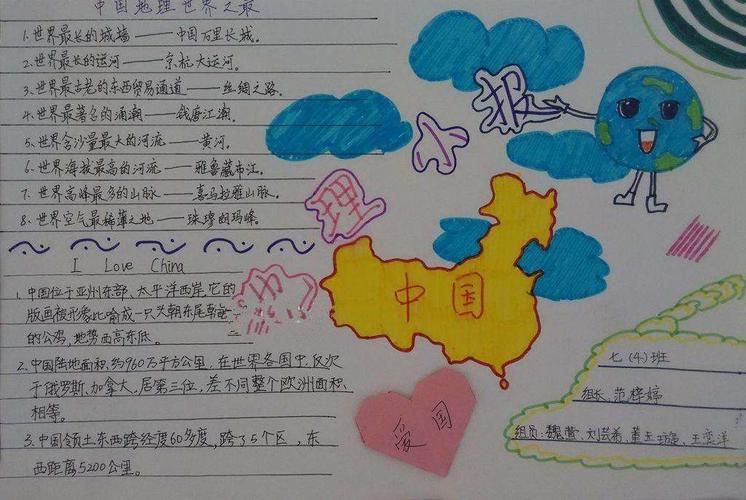 中国地理世界之最
1.世界最长的城墙——中国万里长城。
2.世界最长的运河——京杭大运河。
3.世界最古老的东西贸易通道——丝绸之路。
4.世界最著名的涌潮——钱唐江潮。
5.世界含沙量最大的河流——黄河。
6.世界海拔最高的河流——雅鲁藏布江。
7.世界高峰最多的山脉——喜马拉雅山脉。
8.世界空气最稀薄之地——珠穆朗玛峰。
I Love China
1.中国位于亚州东部、太平洋西岸,它的
版画被形象比喻成一只头朝东尾朝
的公鸡,地势西高东低。
2.中国陆地面积约960万平方公里,在世界各国中,仅次
于俄罗斯、加拿大,居第三位,差不同整个欧洲面积
相等。
3.中国领土东西跨经度60多度,跨了5个区,东
西距离5200公里。
小报
理
中国
爱国
七(4)班
组长:范梓婷
组员:魏 刘芸希 董玉 王奕洋